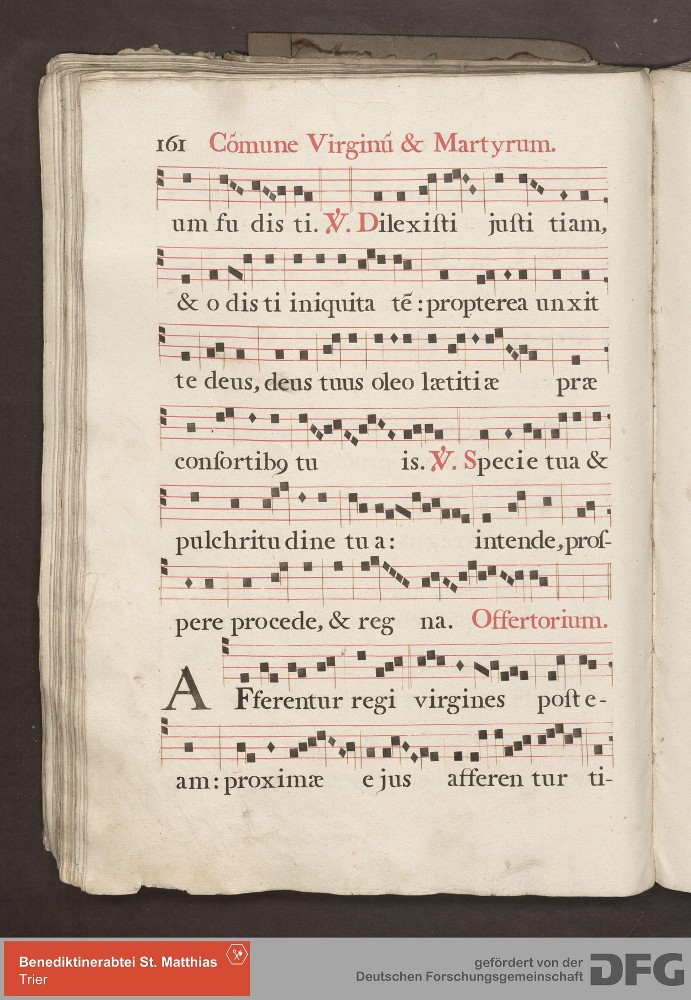 161 Cõmune Virginũ & Martyrum.
um fu dis ti. ℣. Dilexiſti juſti tiam,
& o dis ti iniquita tẽ: propterea unxit
te deus, deus tuus oleo lætiti æ præ
conſortibꝯ tu is. ℣. Specie tua &
pulchritu dine tu a: intende, proſ-
pere procede, & reg na. Offertorium.
AFferentur regi virgines poſt e-
am: proximæ ejus afferen tur ti-
Benediktinerabtei St. Matthias
Trier
gefördert von der
Deutschen Forschungsgemeinschaft DFG